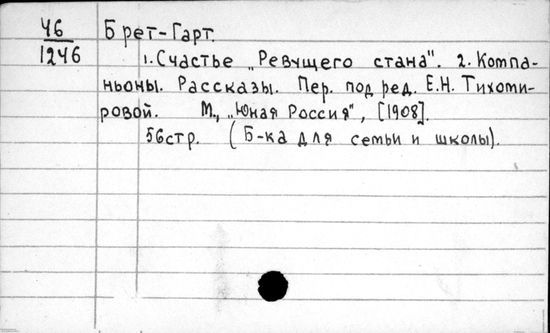 46 Брет-Гарт.
1246 1. Счастье „Ревущего стана". 2. Компа-
ньоны. Рассказы. Пер. под ред. Е.Н. Тихоми-
ровой. М., „Юная Россия", [1908].
56стр. (Б-ка для семьи и школы).